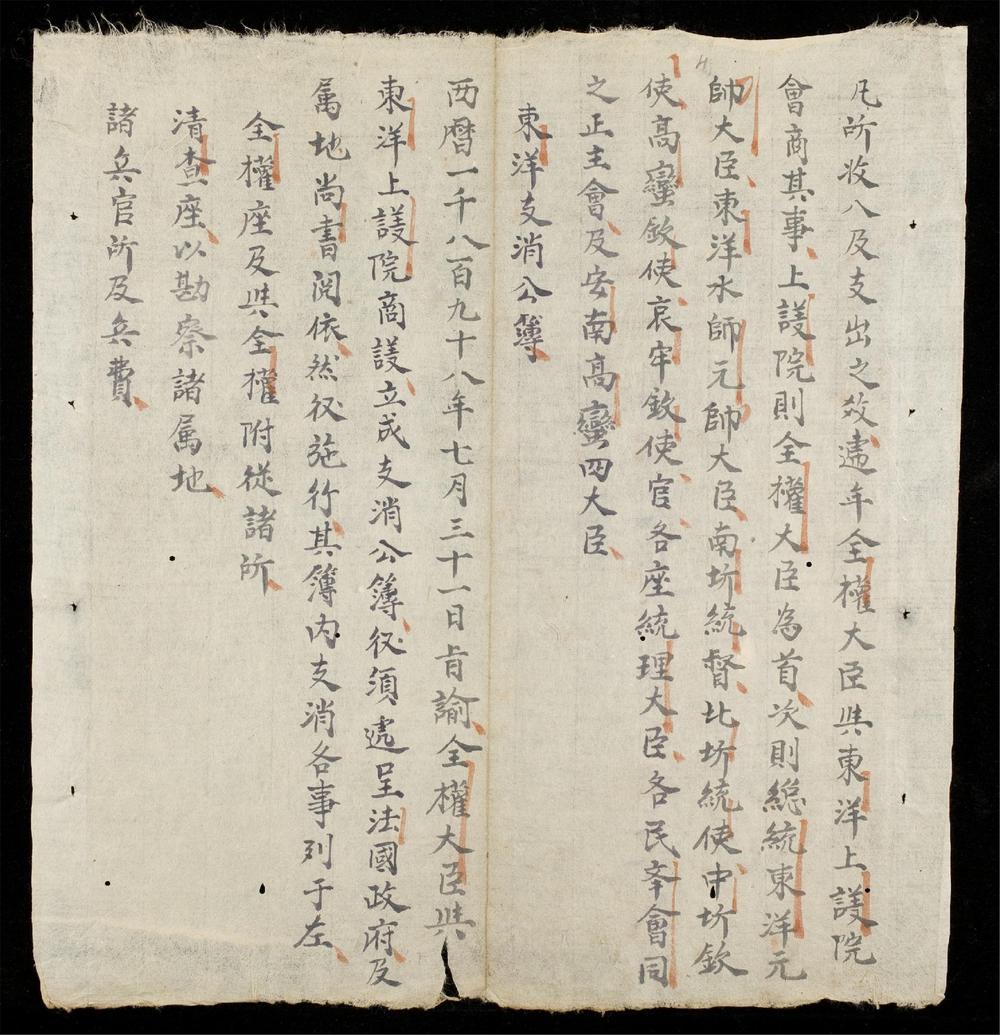 凡所收入及支出之效遞年全權大臣與東洋上議院
會商其事上議院則全權大臣為首次則總統東洋元
帥大臣東洋水師元帥大臣南圻統督北圻統使中圻欽
使高蠻欽使哀牢欽使官各座統理大臣各民亭會同
之正主會及安南高蠻四大臣
東洋支消公簿
西曆一千八百九十八年七月三十一日旨諭全權大臣與
東洋上議院商議立成支消公簿仍須遞呈法國政府及
属地尚書閱依然後施行其簿內支消各事列于左
全權座及與全權附從諸所
清查座以勘察諸属地
諸兵官所及兵費